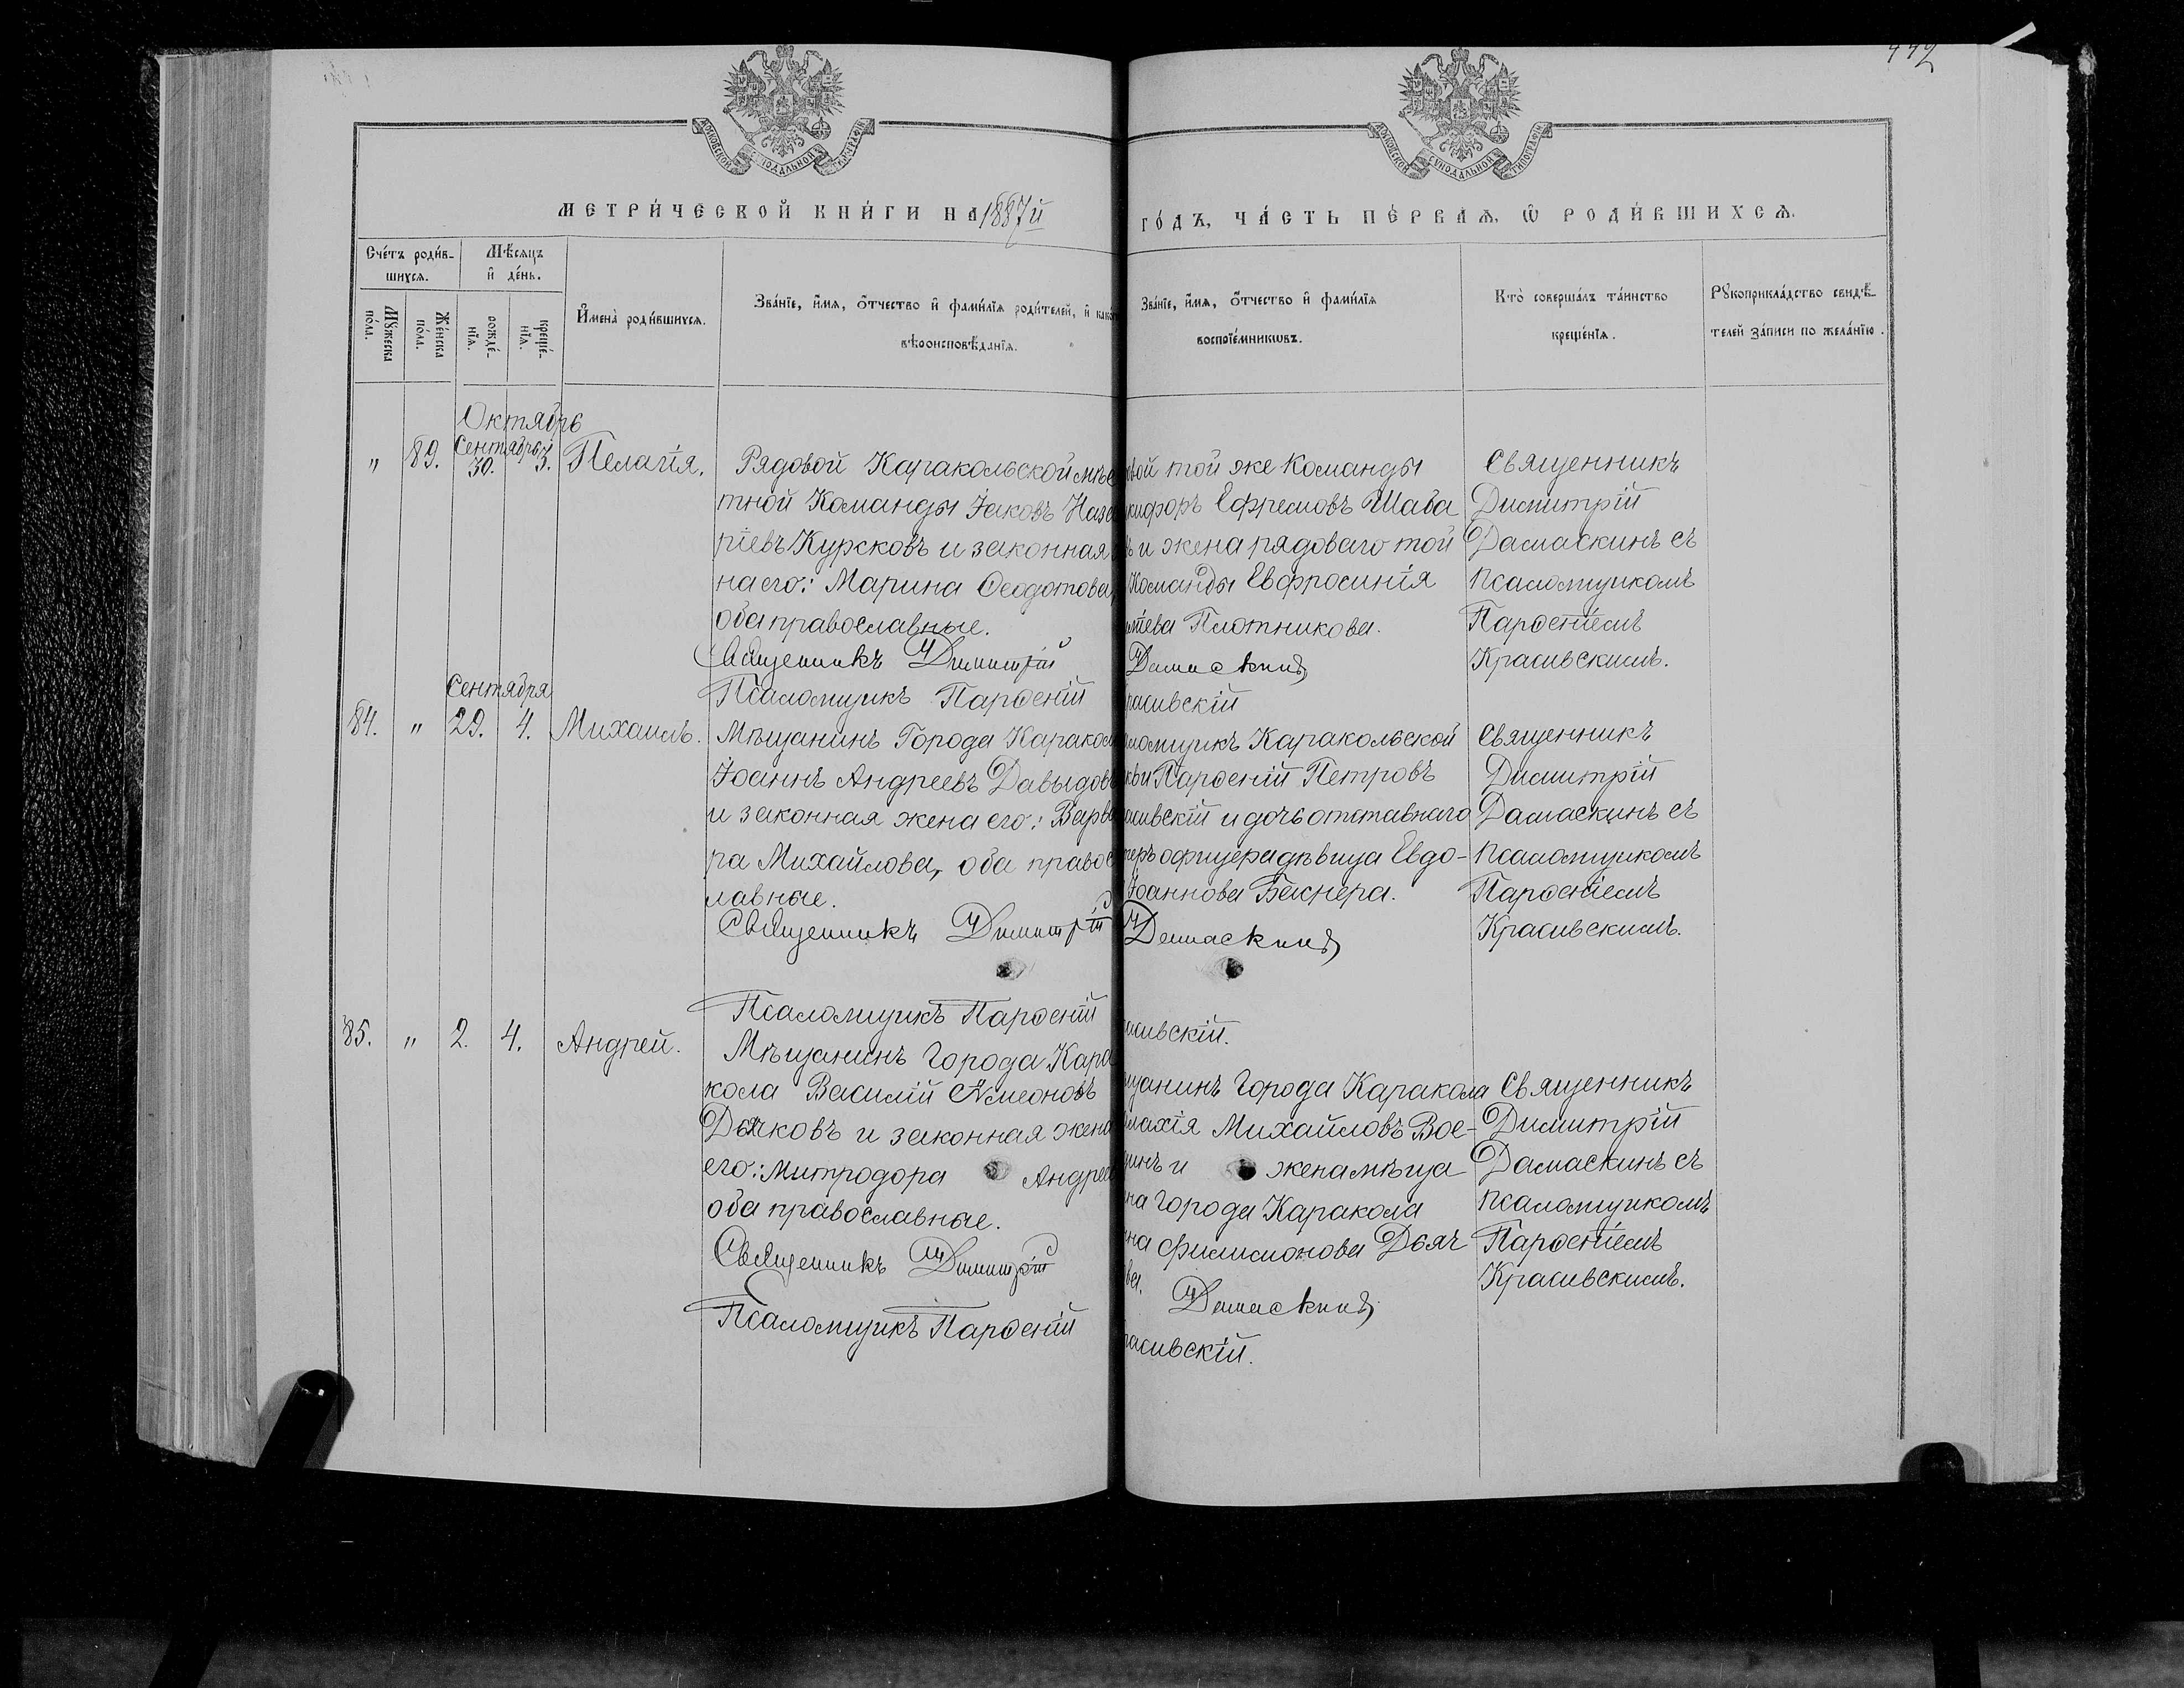 442
МОСКОВСКОЙ СѴНОДАЛЬНОЙ ТИПОГРАФІИ
МОСКОВСКОЙ СѴНОДАЛЬНОЙ ТИПОГРАФІИ
МЕТРИ́ЧЕСКОЙ КНИ́ГИ НА 1887й
ГО́ДЪ, ЧА́СТЬ ПЕ́РВАѦ, Ѿ РОДИ́ВШИХСѦ.
Сче́тъ роди́вшихсѧ.
Мꙋ́жеска по́ла.
Же́нска по́ла.
Мѣ́сѧцъ и҆ де́нь.
рожде́нїѧ.
креще́нїѧ.
И҆мена̀ роди́вшихсѧ.
Зва́нїе, и҆́мѧ, ѻ҆́тчество и҆ фами́лїѧ роди́телей, и҆ како́гѡ
вѣроисповѣ́данїѧ.
Зва́нїе, и҆́мѧ, ѻ҆́тчество и҆ фами́лїѧ
воспрїе́мникѡвъ.
Кто̀ соверша́лъ та́инство
креще́нїѧ.
Рꙋкоприкла́дство свидѣ́-
телей за́писи по жела́нїю.
Октябрь
" 89. Сентября 30. 3. Пелагія.
Рядовой Каракольской мѣс
тной Команды Іаковъ Наза
ріевъ Курсковъ и законная
на его: Марина Ѳеодотова,
оба православные.
Священникъ Димитрій
Псаломщикъ Парѳеній
вой той же Команды
кифоръ Ефремовъ Шава
ъ и жена рядоваго той
Команды Евфросинія
Плотникова.
Дамаскинъ
расивскій
Священникъ
Димитрій
Дамаскинъ съ
псаломщикомъ
Парѳеніемъ
Красивскимъ.
Сентября
84. " 29. 4. Михаилъ.
Мѣщанинъ Города Каракол
Іоаннъ Андреевъ Давыдовъ
и законная жена его: Варва
ра Михайлова, оба правос
лавные.
Священникъ Димитрій
Псаломщикъ Парѳеній
ломщикъ Каракольской
кви Парѳеній Петровъ
асивскій и дочь отставнаго
теръ офицера дѣвица Евдо-
Іоаннова Бекнера.
Дамаскинъ
расивскій.
Священникъ
Димитрій
Дамаскинъ съ
псаломщикомъ
Парѳеніемъ
Красивскимъ.
85. " 2. 4. Андрей.
Мѣщанинъ Города Кара
кола Василій Сѵмеоновъ
Дьячковъ и законная жена
его: Митродора Андрее
оба православные.
Священникъ Димитрій
Псаломщикъ Парѳеній
щанинъ Города Каракола
лахія Михайловъ Вое-
динъ и жена мѣща
на Города Каракола
на Филимонова Дьяч
ва.
Дамаскинъ
расивскій.
Священникъ
Димитрій
Дамаскинъ съ
псаломщикомъ
Парѳеніемъ
Красивскимъ.